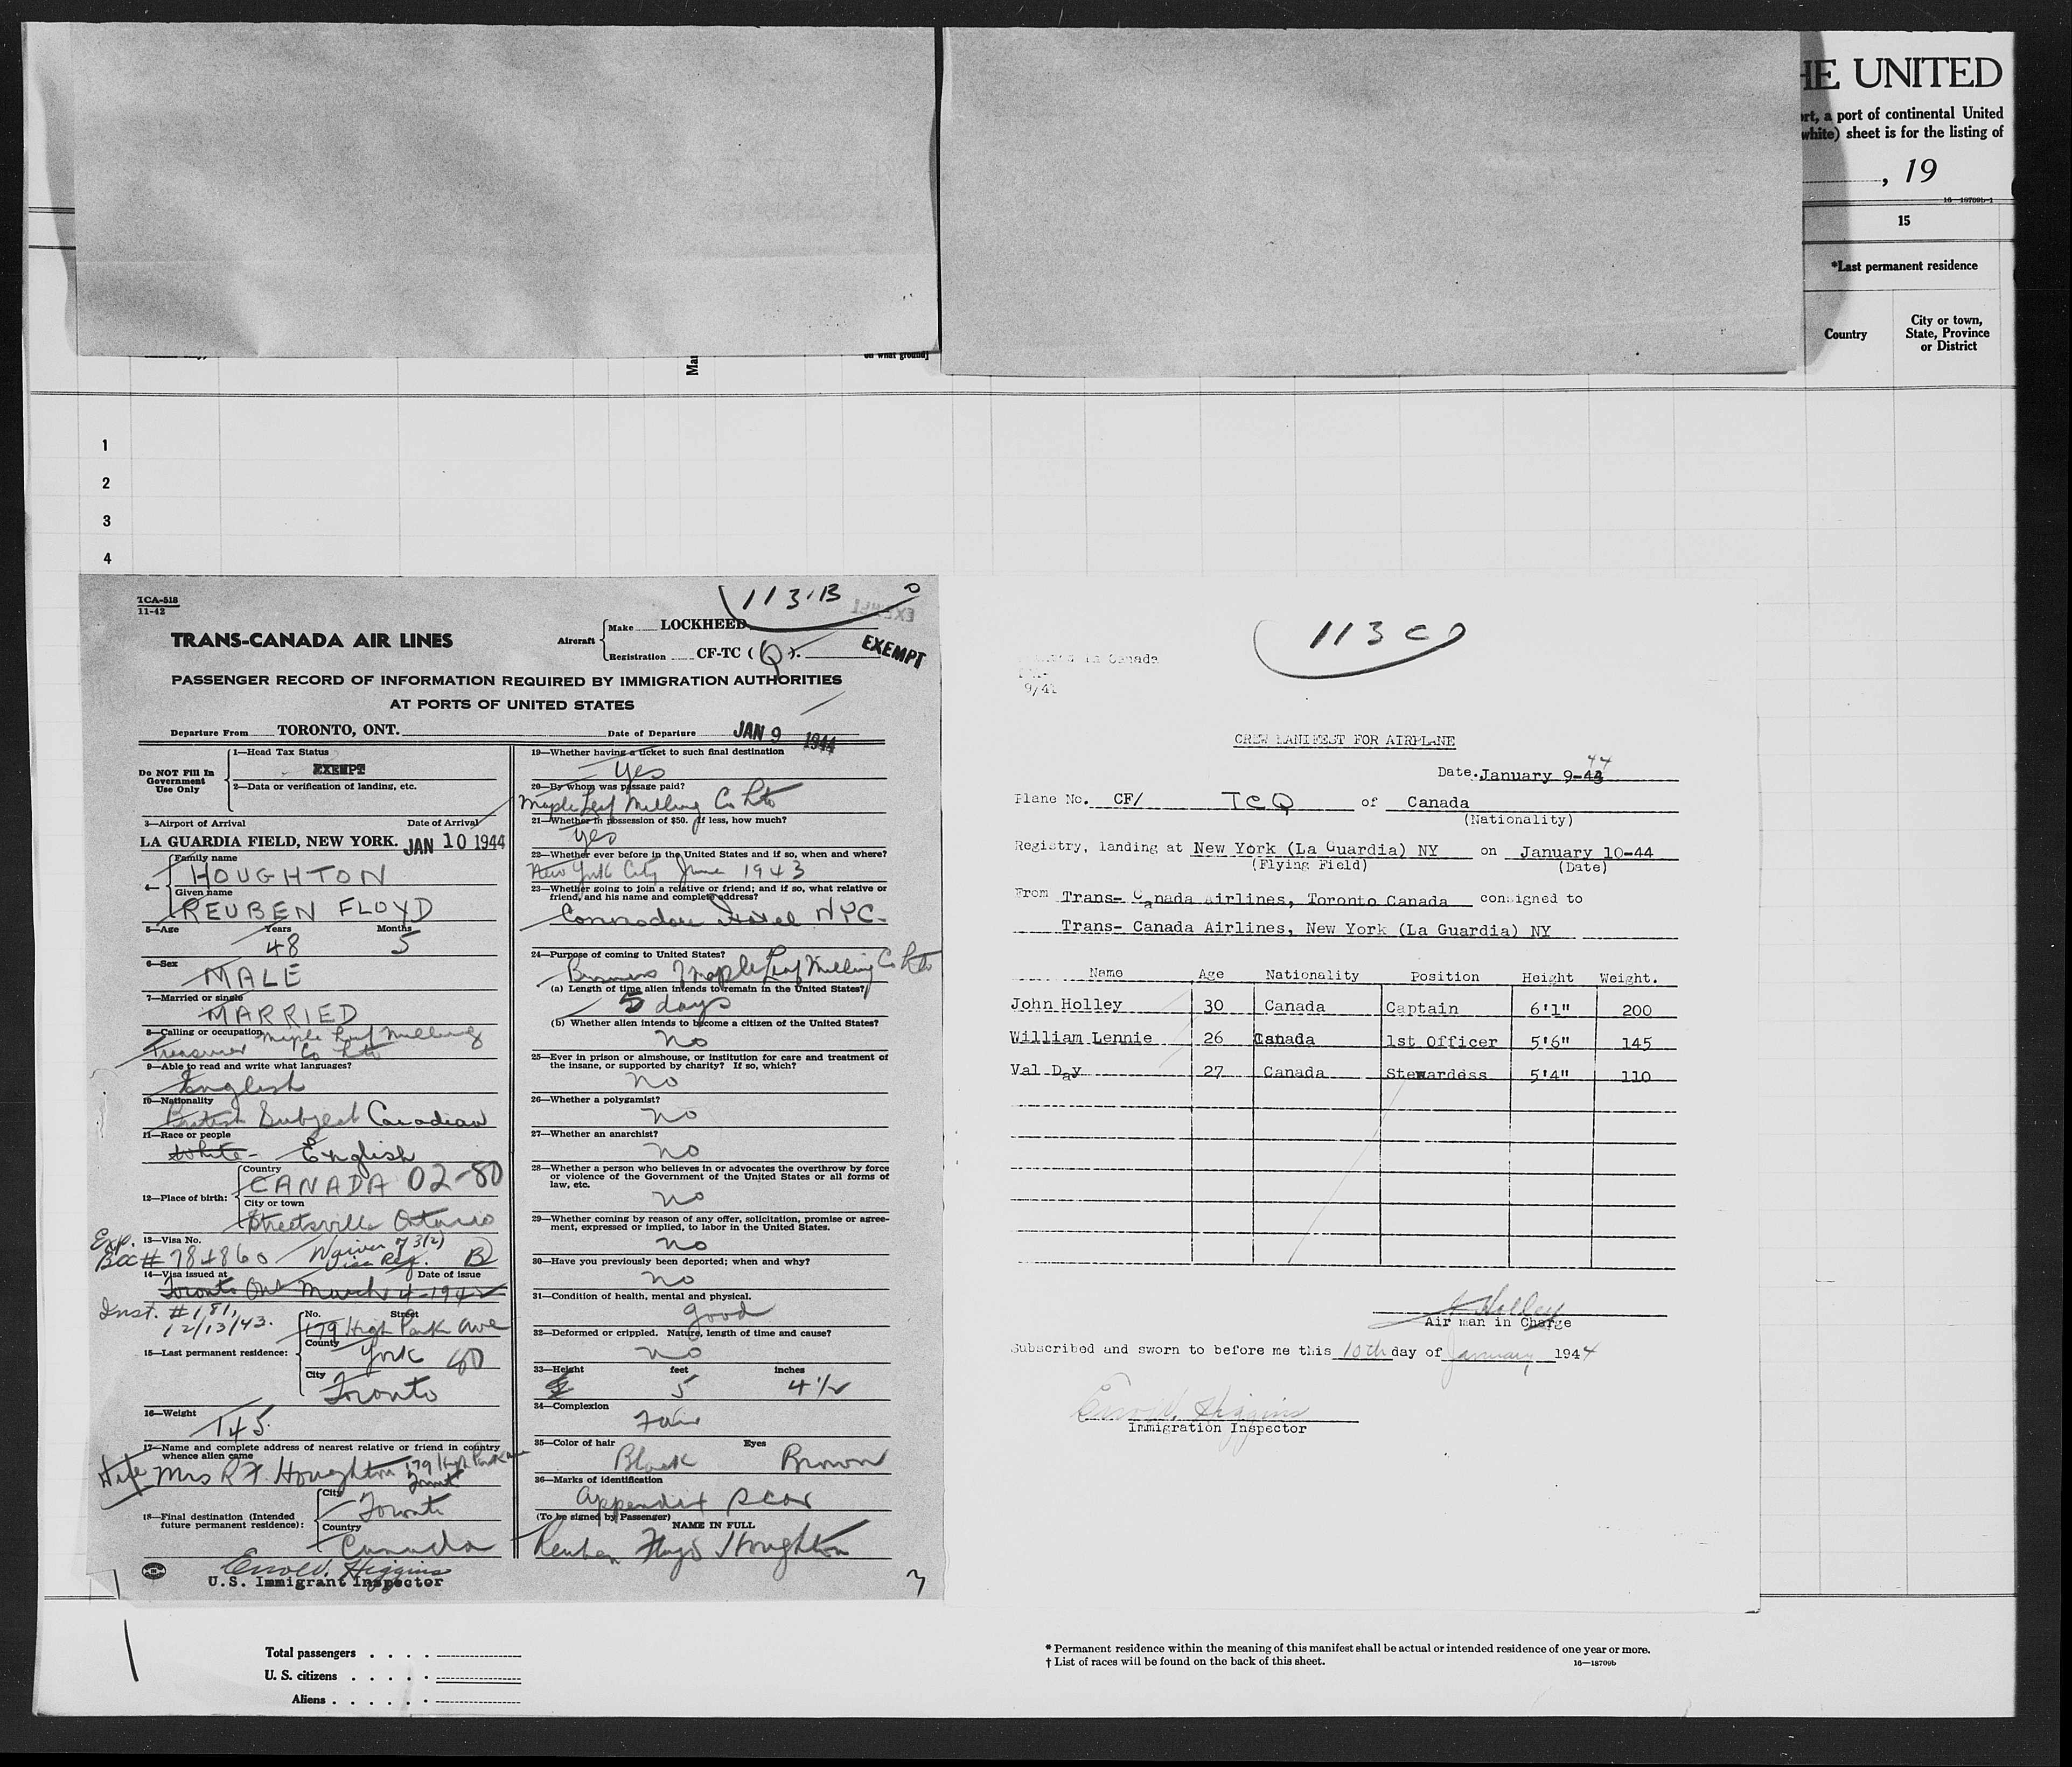 HE UNITED
rt, a port of continental United
white) sheet is for the listing of
, 19
16—18709b-1
15
*Last permanent residence
Country
City or town,
State, Province
or District
on what ground]
1
2
3
4
TCA-518
11-42
113-B
TRANS-CANADA AIR LINES
Aircraft
Make LOCKHEED
Registration CF-TC ( Q ).
EXEMPT
EXEMPT
PASSENGER RECORD OF INFORMATION REQUIRED BY IMMIGRATION AUTHORITIES
AT PORTS OF UNITED STATES
Departure From TORONTO, ONT. Date of Departure JAN 9 1944
Do NOT Fill In
Government
Use Only
1—Head Tax Status
EXEMPT
2—Data or verification of landing, etc.
3—Airport of Arrival Date of Arrival
LA GUARDIA FIELD, NEW YORK. JAN 10 1944
4—
Family name
HOUGHTON
Given name
REUBEN FLOYD
5—Age Years Months
48 5
6—Sex
MALE
7—Married or single
MARRIED
8—Calling or occupation Maple Leaf Milling
Treasurer Co Ltd
9—Able to read and write what languages?
English
10—Nationality
British Subject Canadian
11—Race or people
White - English
12—Place of birth:
Country
CANADA 02-80
City or town
Streetsville Ontario
13—Visa No.
Exp.
BCC # 784860 Waiver 7 3(2)
Visa Reg. B
14—Visa issued at Date of issue
Toronto Ont March 4-194
Inst. #181,
12/13/43.
15—Last permanent residence:
No. Street
179 High Park Ave
County
York 80
City
Toronto
16—Weight
145
17—Name and complete address of nearest relative or friend in country
whence alien came
Wife Mrs R F. Houghton 179 High Park Ave
18—Final destination (Intended
future permanent residence):
City
Toronto
Country
Canada
Errol V. Higgins
U.S. Immigrant Inspector
19—Whether having a ticket to such final destination
Yes
20—By whom was passage paid?
Maple Leaf Milling Co Ltd
21—Whether in possession of $50. If less, how much?
Yes
22—Whether ever before in the United States and if so, when and where?
New York City June 1943
23—Whether going to join a relative or friend; and if so, what relative or
friend, and his name and complete address?
Commodore Hotel NYC-
24—Purpose of coming to United States?
Business Maple Leaf Milling Co Ltd
(a) Length of time alien intends to remain in the United States?
5 days
(b) Whether alien intends to become a citizen of the United States?
no
25—Ever in prison or almshouse, or institution for care and treatment of
the insane, or supported by charity? If so, which?
no
26—Whether a polygamist?
no
27—Whether an anarchist?
no
28—Whether a person who believes in or advocates the overthrow by force
or violence of the Government of the United States or all forms of
law, etc.
no
29—Whether coming by reason of any offer, solicitation, promise or agree-
ment, expressed or implied, to labor in the United States.
no
30—Have you previously been deported; when and why?
no
31—Condition of health, mental and physical.
Good
32—Deformed or crippled. Nature, length of time and cause?
no
33—Height feet inches
5 4½
34—Complexion
Fair
35—Color of hair Eyes
Black Brown
36—Marks of identification
Appendix Scar
(To be signed by Passenger)
NAME IN FULL
Reuben Floyd Houghton
113 C
in Canada
9/41
CREW MANIFEST FOR AIRPLANE
44
Date. January 9-43
Plane No. CF/ TCQ of Canada
(Nationality)
Registry, landing at New York (La Guardia) NY on January 10-44
(Flying Field) (Date)
From Trans- Canada Airlines, Toronto Canada consigned to
Trans- Canada Airlines, New York (La Guardia) NY
Name Age Nationality Position Height Weight.
John Holley 30 Canada Captain 6'1" 200
William Lennie 26 Canada 1st Officer 5'6" 145
Val Day 27 Canada Stewardess 5'4" 110
J Holley
Air man in Charge
Subscribed and sworn to before me this 10th day of January, 1944
Errol V. Higgins
Immigration Inspector
Total passengers . . . .
U. S. citizens . . . . .
Aliens . . . . . .
* Permanent residence within the meaning of this manifest shall be actual or intended residence of one year or more.
† List of races will be found on the back of this sheet.
16—18709b